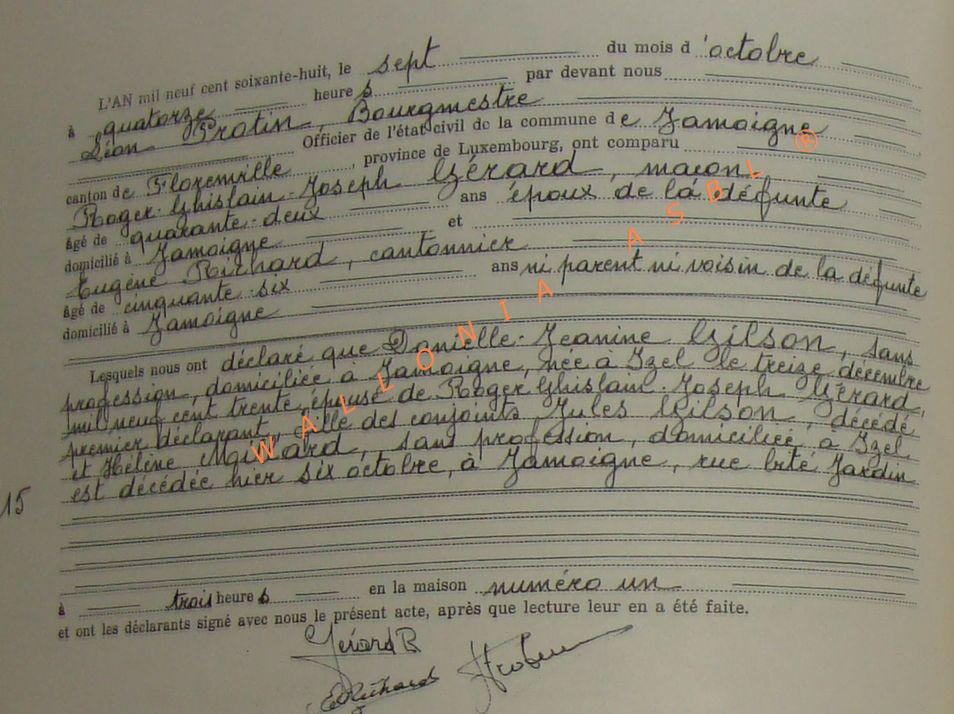 L'AN mil neuf cent soixante-huit, le sept du mois d'octobre
à quatorze heures par devant nous
Léon Protin, Bourgmestre
Officier de l'état civil de la commune de Jamoigne
canton de Florenville, province de Luxembourg, ont comparu
Roger-Ghislain-Joseph Gérard, maçon
âgé de quarante-deux ans époux de la défunte
domicilié à Jamoigne et
Eugène Richard, cantonnier
âgé de cinquante-six ans ni parent ni voisin de la défunte
domicilié à Jamoigne
Lesquels nous ont déclaré que Danielle-Jeanine Gilson, sans
profession, domiciliée à Jamoigne, née à Izel le treize décembre
mil neuf cent trente, épouse de Roger Ghislain-Joseph Gérard,
premier déclarant, fille des conjoints Jules Gilson, décédé
et Hélène, sans profession, domiciliée à Izel,
est décédée hier six octobre, à Jamoigne, rue Jardin
15
à trois heures en la maison numéro un
et ont les déclarants signé avec nous le présent acte, après que lecture leur en a été faite.
Gérard R
E Richard
WALLONIA ASBL ®